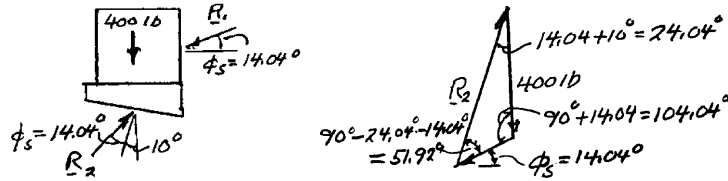 400 lb
R₁
ϕs = 14.04°
ϕs = 14.04°
10°
R₂
14.04 + 10° = 24.04°
R₂
400 lb
90° + 14.04 = 104.04°
90° - 24.04° - 14.04°
= 51.92°
ϕs = 14.04°